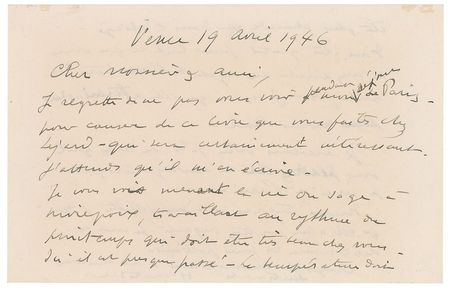 Vence 19 avril 1946
Cher monsieur & ami,
pendant séjour
Je regrette de ne pas vous voir mon de Paris -
pour causer de ce livre que vous faites chez
qui sera certainement intéressant.
J'attends qu'il m'en écrive.
Je vous vois menant la vie du sage à
Mirepoix, travaillant au rythme du
printemps qui doit être très beau chez vous -
Ici il est presque passé - La température doit